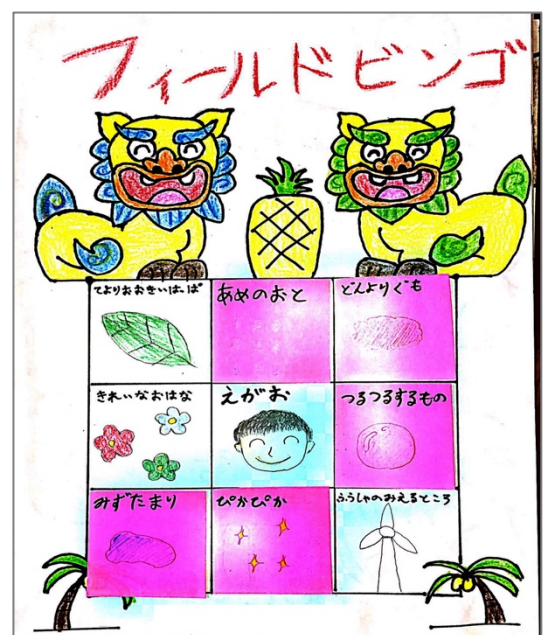 フィールドビンゴ
てよりおおきいはっぱ
あめのおと
どんよりぐも
きれいなおはな
えがお
つるつるするもの
みずたまり
ぴかぴか
ふうしゃのみえるところ